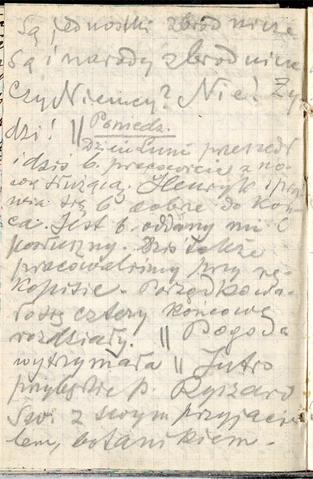 Są jednostki zbrodnicze
są i narody zbrodnicze
Czy Niemcy? Nie! Ży
dzi! || Poniedz.
Dzień Lunii przeszedł
i dziś b. pracowicie z no-
wą służącą. Henryk
się b. dobrze do koń
ca. Jest b. oddany mi i
posłuszny. Dziś także
pracowaliśmy przy rę-
kopisie. Porządkowa-
cztery końcowe
rozdziały. || Pogoda
wytrzymała || Jutro
przybędzie p. Ryszard
z swym przyjacie
lem, botanikiem.